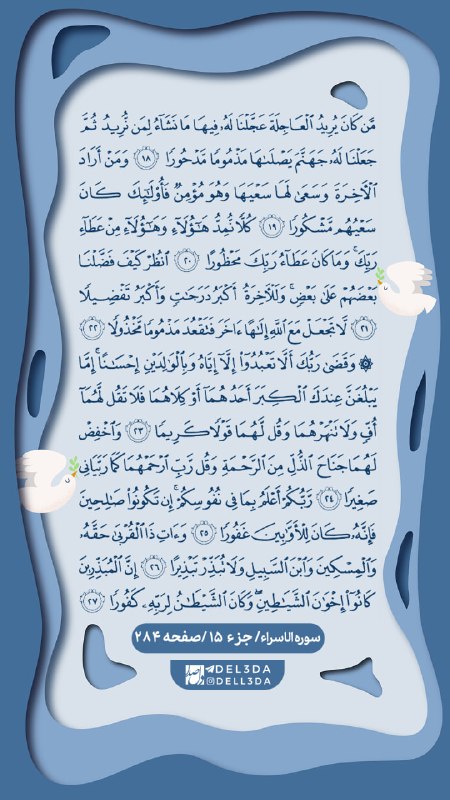 مَّن كَانَ يُرِيدُ ٱلْعَاجِلَةَ عَجَّلْنَا لَهُۥ فِيهَا مَا نَشَآءُ لِمَن نُّرِيدُ ثُمَّ
جَعَلْنَا لَهُۥ جَهَنَّمَ يَصْلَىٰهَا مَذْمُومًا مَّدْحُورًا ١٨ وَمَنْ أَرَادَ
ٱلْـَٔاخِرَةَ وَسَعَىٰ لَهَا سَعْيَهَا وَهُوَ مُؤْمِنٌ فَأُو۟لَـٰٓئِكَ كَانَ
سَعْيُهُم مَّشْكُورًا ١٩ كُلًّا نُّمِدُّ هَـٰٓؤُلَآءِ وَهَـٰٓؤُلَآءِ مِنْ عَطَآءِ
رَبِّكَ ۚ وَمَا كَانَ عَطَآءُ رَبِّكَ مَحْظُورًا ٢٠ ٱنظُرْ كَيْفَ فَضَّلْنَا
بَعْضَهُمْ عَلَىٰ بَعْضٍ ۚ وَلَلْـَٔاخِرَةُ أَكْبَرُ دَرَجَـٰتٍ وَأَكْبَرُ تَفْضِيلًا
٢١ لَّا تَجْعَلْ مَعَ ٱللَّهِ إِلَـٰهًا ءَاخَرَ فَتَقْعُدَ مَذْمُومًا مَّخْذُولًا ٢٢
۞ وَقَضَىٰ رَبُّكَ أَلَّا تَعْبُدُوٓا۟ إِلَّآ إِيَّاهُ وَبِٱلْوَٰلِدَيْنِ إِحْسَـٰنًا ۚ إِمَّا
يَبْلُغَنَّ عِندَكَ ٱلْكِبَرَ أَحَدُهُمَآ أَوْ كِلَاهُمَا فَلَا تَقُل لَّهُمَآ
أُفٍّ وَلَا تَنْهَرْهُمَا وَقُل لَّهُمَا قَوْلًا كَرِيمًا ٢٣ وَٱخْفِضْ
لَهُمَا جَنَاحَ ٱلذُّلِّ مِنَ ٱلرَّحْمَةِ وَقُل رَّبِّ ٱرْحَمْهُمَا كَمَا رَبَّيَانِى
صَغِيرًا ٢٤ رَّبُّكُمْ أَعْلَمُ بِمَا فِى نُفُوسِكُمْ ۚ إِن تَكُونُوا۟ صَـٰلِحِينَ
فَإِنَّهُۥ كَانَ لِلْأَوَّٰبِينَ غَفُورًا ٢٥ وَءَاتِ ذَا ٱلْقُرْبَىٰ حَقَّهُۥ
وَٱلْمِسْكِينَ وَٱبْنَ ٱلسَّبِيلِ وَلَا تُبَذِّرْ تَبْذِيرًا ٢٦ إِنَّ ٱلْمُبَذِّرِينَ
كَانُوٓا۟ إِخْوَٰنَ ٱلشَّيَـٰطِينِ ۖ وَكَانَ ٱلشَّيْطَـٰنُ لِرَبِّهِۦ كَفُورًا ٢٧
سوره الاسراء/ جزء ۱۵ /صفحه ۲۸۴
DEL3DA
DELL3DA